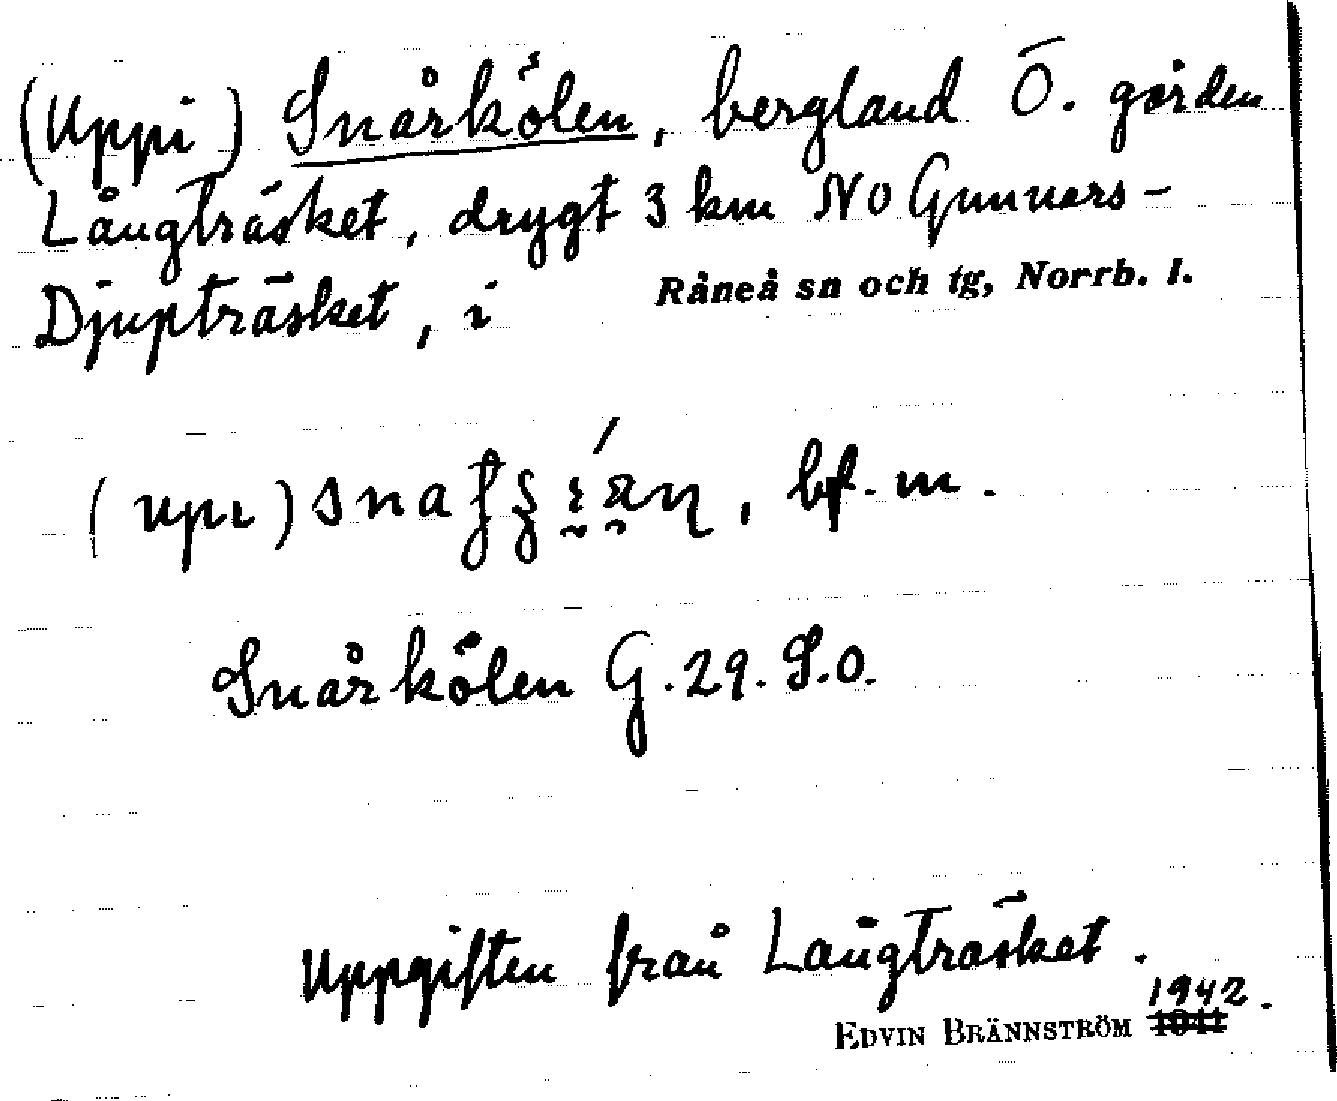 (Uppi) Snårkölen, bergland Ö. gården
Långträsket, drygt 3 km NO Gunnars-
Djupträsket, i Råneå sn och tg, Norrb. l.
(upı) , bf. m.
Snårkölen G. 29. S.O.
Uppgiften från Långträsket.
1942.
EDVIN BRÄNNSTRÖM 1941